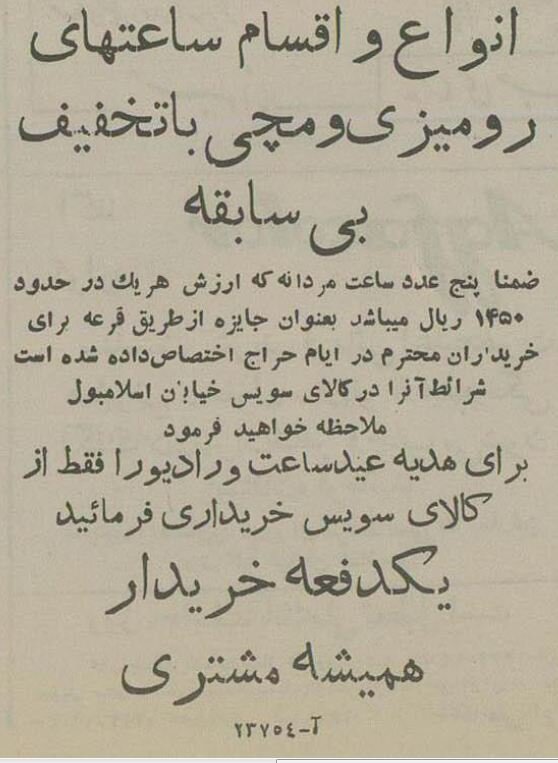 انواع و اقسام ساعتهای
رومیزی و مچی با تخفیف
بی سابقه
ضمنا پنج عدد ساعت مردانه که ارزش هریك در حدود
۱۴۵۰ ریال میباشد بعنوان جایزه از طریق قرعه برای
خریداران محترم در ایام حراج اختصاص داده شده است
شرائط آنرا در کالای سویس خیابان اسلامبول
ملاحظه خواهید فرمود
برای هدیه عید ساعت و رادیو را فقط از
کالای سویس خریداری فرمائید
یکدفعه خریدار
همیشه مشتری
آ-۲۳۷۵٤